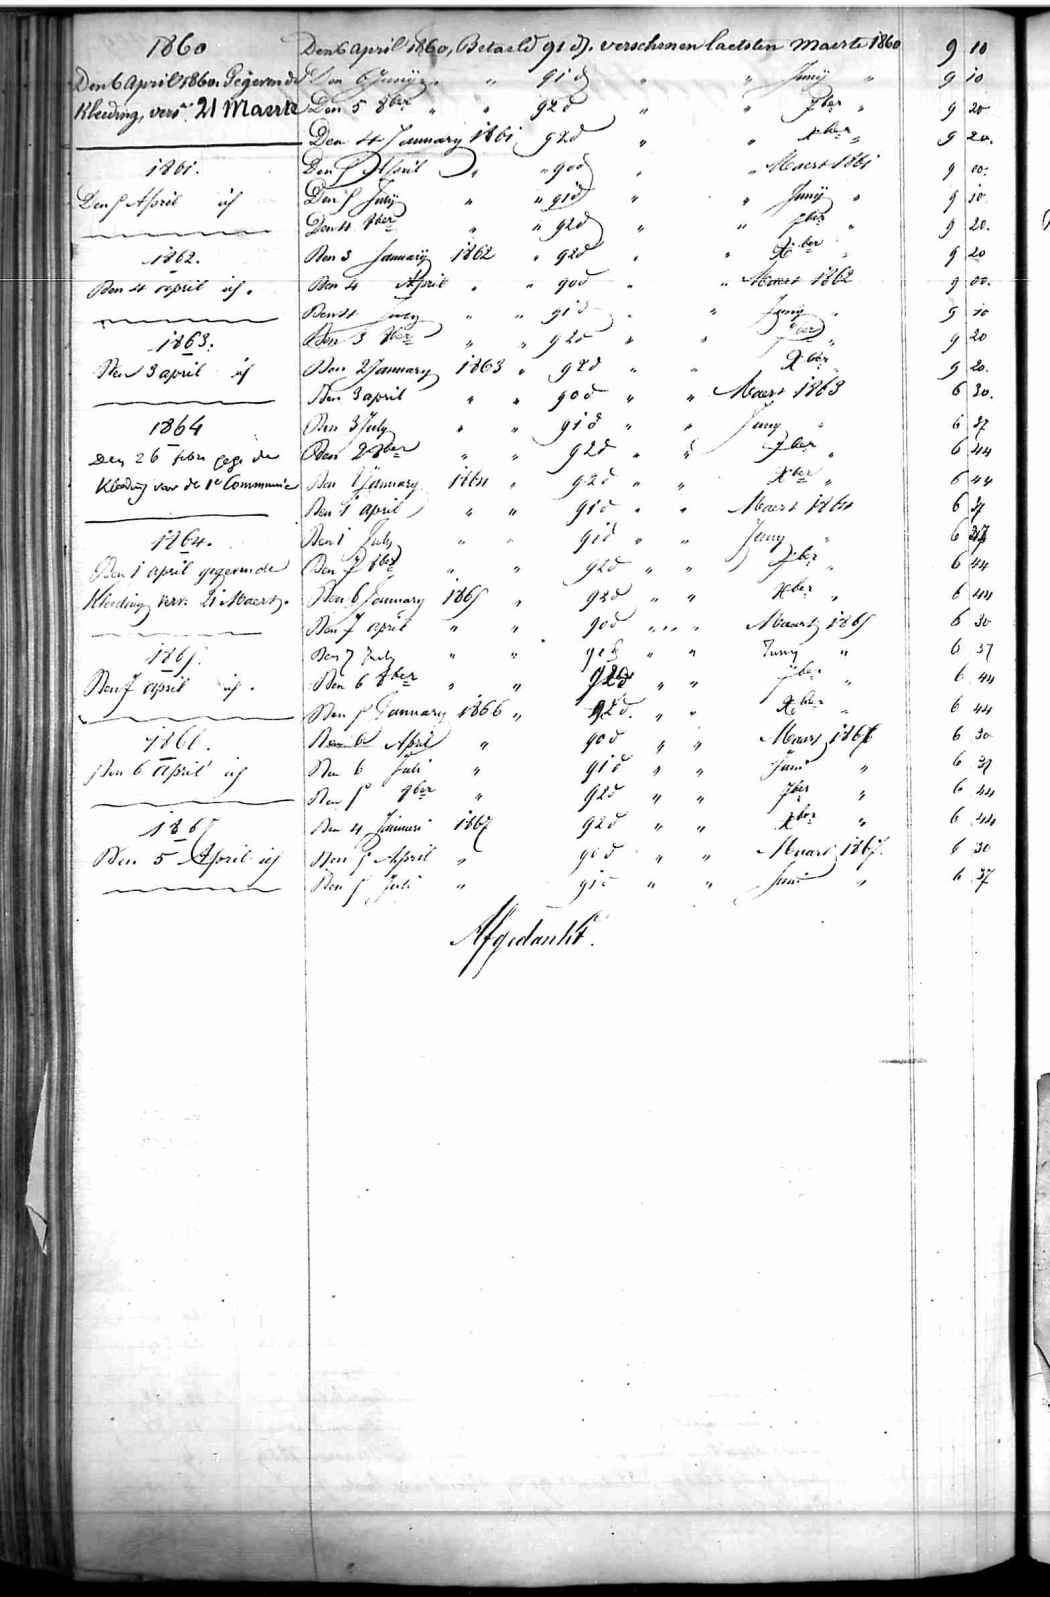 1860
Den 6 April 1860. Gegeven de
Kleeding, vers. 21 Maerte
1861.
Den 5 April
1862.
Den 4 april
1863.
Den 3 april
1864
Den 26 febr gege de
Kleeding voor de 1e Communie
1864.
Den 1 april gegeven de
Kleeding verv. 21 Maert.
1865.
Den 7 april
1866.
Den 6 April
1867
Den 5 April
Den 6 April 1860, Betaeld 91 d. verschenen laetsten Maerte 1860 9 10
Den 6 Junÿ " " 91 d " " Junÿ " 9 10
Den 5 8ber " " 92 d " " 7ber " 9 20
Den 4 January 1861 92 d " " Xber " 9 20.
Den 5 April " " 90 d " " Maert 1861 9 00.
Den 5 Julÿ " " 91 d " " Junÿ " 9 10
Den 4 8ber " " 92 d " " 7ber " 9 20.
Den 3 Januarÿ 1862 " 92 d " " Xber " 9 20
Den 4 April " " 90 d " " Maert 1862 9 00.
Den 4 July " " 91 d " " Juny " 9 10
Den 3 8ber " " 92 d " " 7ber " 9 20
Den 2 January 1863 " 92 d " " Xber " 9 20.
Den 3 april " " 90 d " " Maert 1863 6 30.
Den 3 July " " 91 d " " Juny " 6 37
Den 2 8ber " " 92 d " " 7ber " 6 44
Den 1 January 1864 " 92 d " " Xber " 6 44
Den 1 april " " 91 d " " Maert 1864 6 37
Den 1 July " " 91 d " " Juny " 6 37
Den 7 8ber " " 92 d " " 7ber " 6 44
Den 6 January 1865 " 92 d " " Xber " 6 44
Den 7 april " " 90 d " " Maart 1865 6 30
Den 7 July " " 91 d " " Juny " 6 37
Den 6 8ber " " 92 d " " 7ber " 6 44
Den 5 January 1866 " 92 d. " " Xber " 6 44
Den 6 April " 90 d " " Maart 1866 6 30
Den 6 Juli " 91 d " " Juni " 6 37
Den 5 8ber " 92 d " " 7ber " 6 44
Den 4 Januari 1867 92 d " " Xber " 6 44
Den 5 April " 90 d " " Maart 1867. 6 30
Den 5 Juli " 91 d " " Juni " 6 37
Afgedankt.